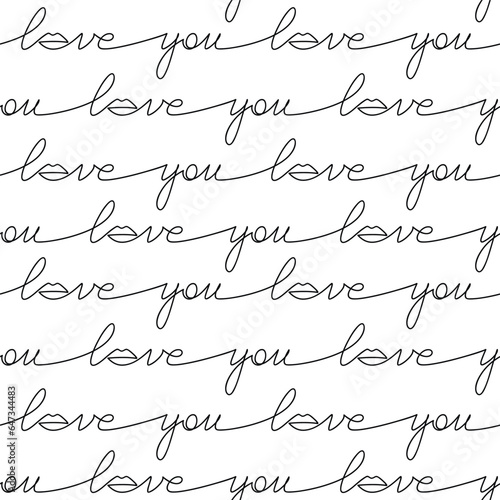 love you love you
ou love you love y
love you love you
ou love you love y
love you love you
ou love you love y
love you love you
ou love you love y
Adobe Stock
647344483